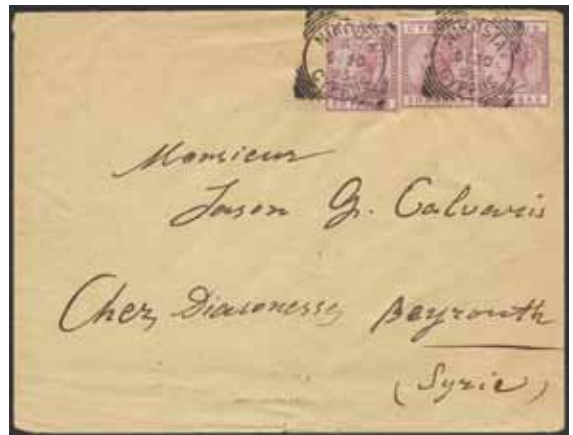 NICOSIA CYPRUS
CYPRUS
NICOSIA CYPRUS
Monsieur
Jason G. Calvaris
Chez Diaconesses Beyrouth
(Syrie)